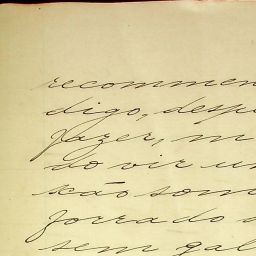 recommen
digo, desp
fazer, m
do vir u
são som
forrado
sem gal